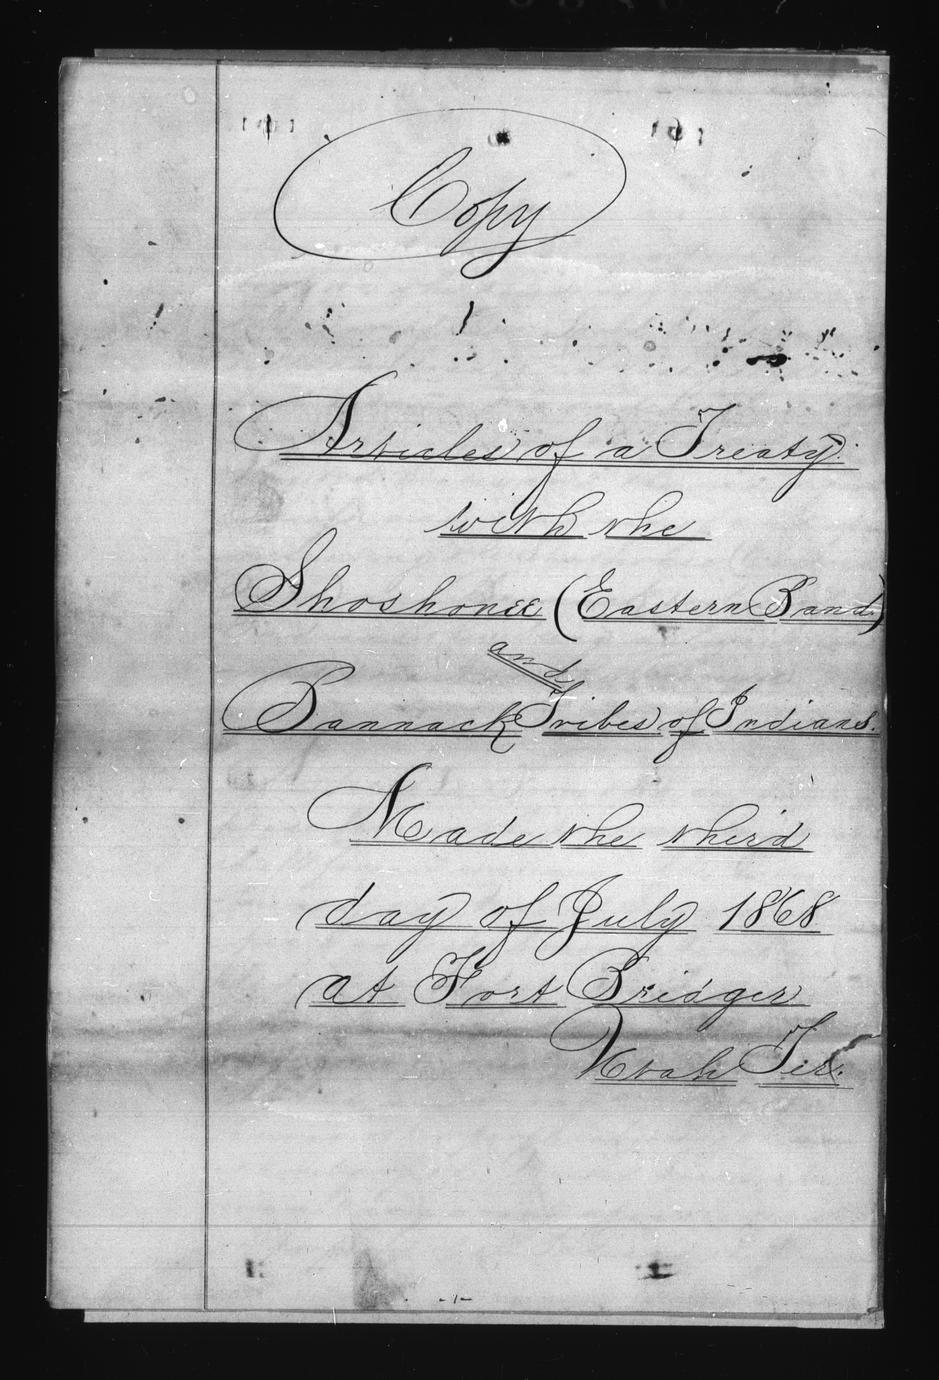 Copy
Articles of a Treaty
with the
Shoshonee (Eastern Band)
and
Bannack Tribes of Indians.
Made the third
day of July 1868
at Fort Bridger
Utah Ter.
-1-